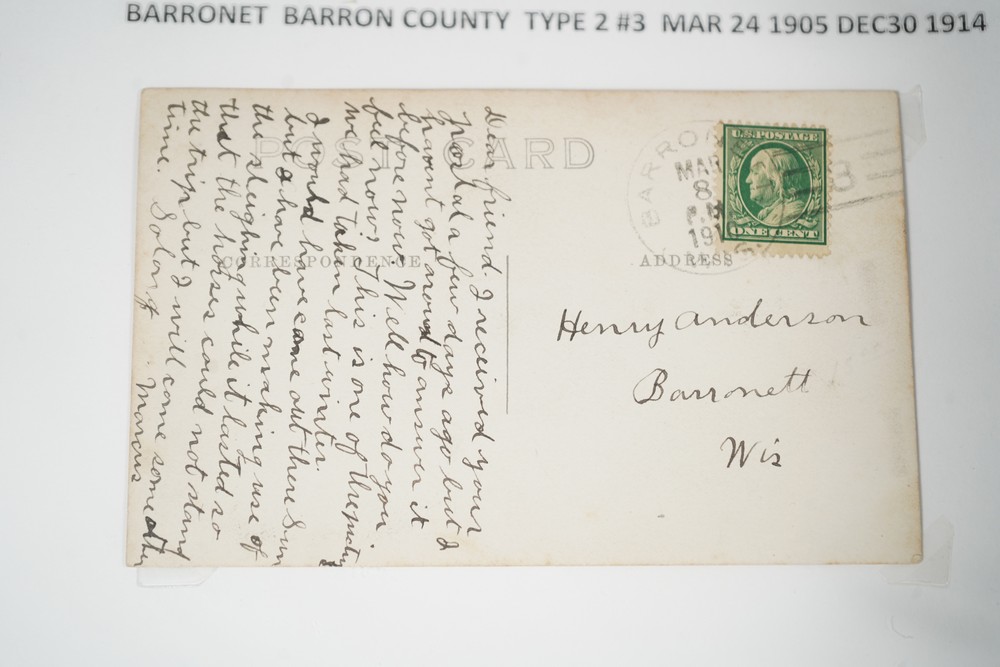 BARRONET BARRON COUNTY TYPE 2 #3 MAR 24 1905 DEC30 1914
POST CARD
CORRESPONDENCE
ADDRESS
Dear friend I received your
postal a few days ago but I
havent got around to answer it
before now. Well how do you
feel now, This is one of the
we had taken last winter.
I would have came out there Sun
but I have been making use of
the sleighing while it lasted so
that the horses could not stand
the trip but I will come some other
time. So long Marcus
BARRON
MAR
8
P.M
191
U.S. POSTAGE
ONE CENT
3
Henry Anderson
Barronett
Wis